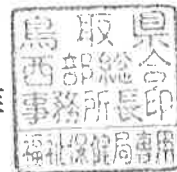 鳥取県
西部総合
事務所長印
福祉保健局専用